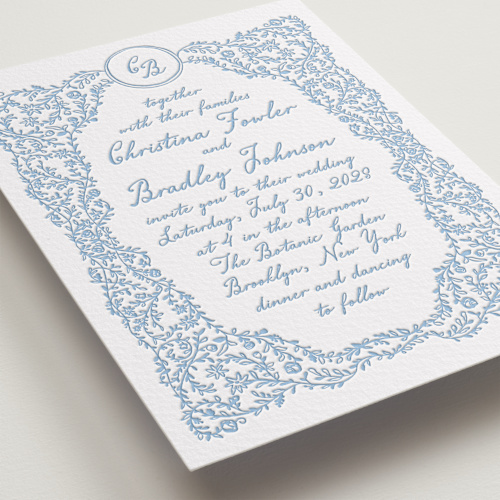 CB
together
with their families
Christina Fowler
and
Bradley Johnson
invite you to their wedding
Saturday, July 30, 2023
at 4 in the afternoon
The Botanic Garden
Brooklyn, New York
dinner and dancing
to follow